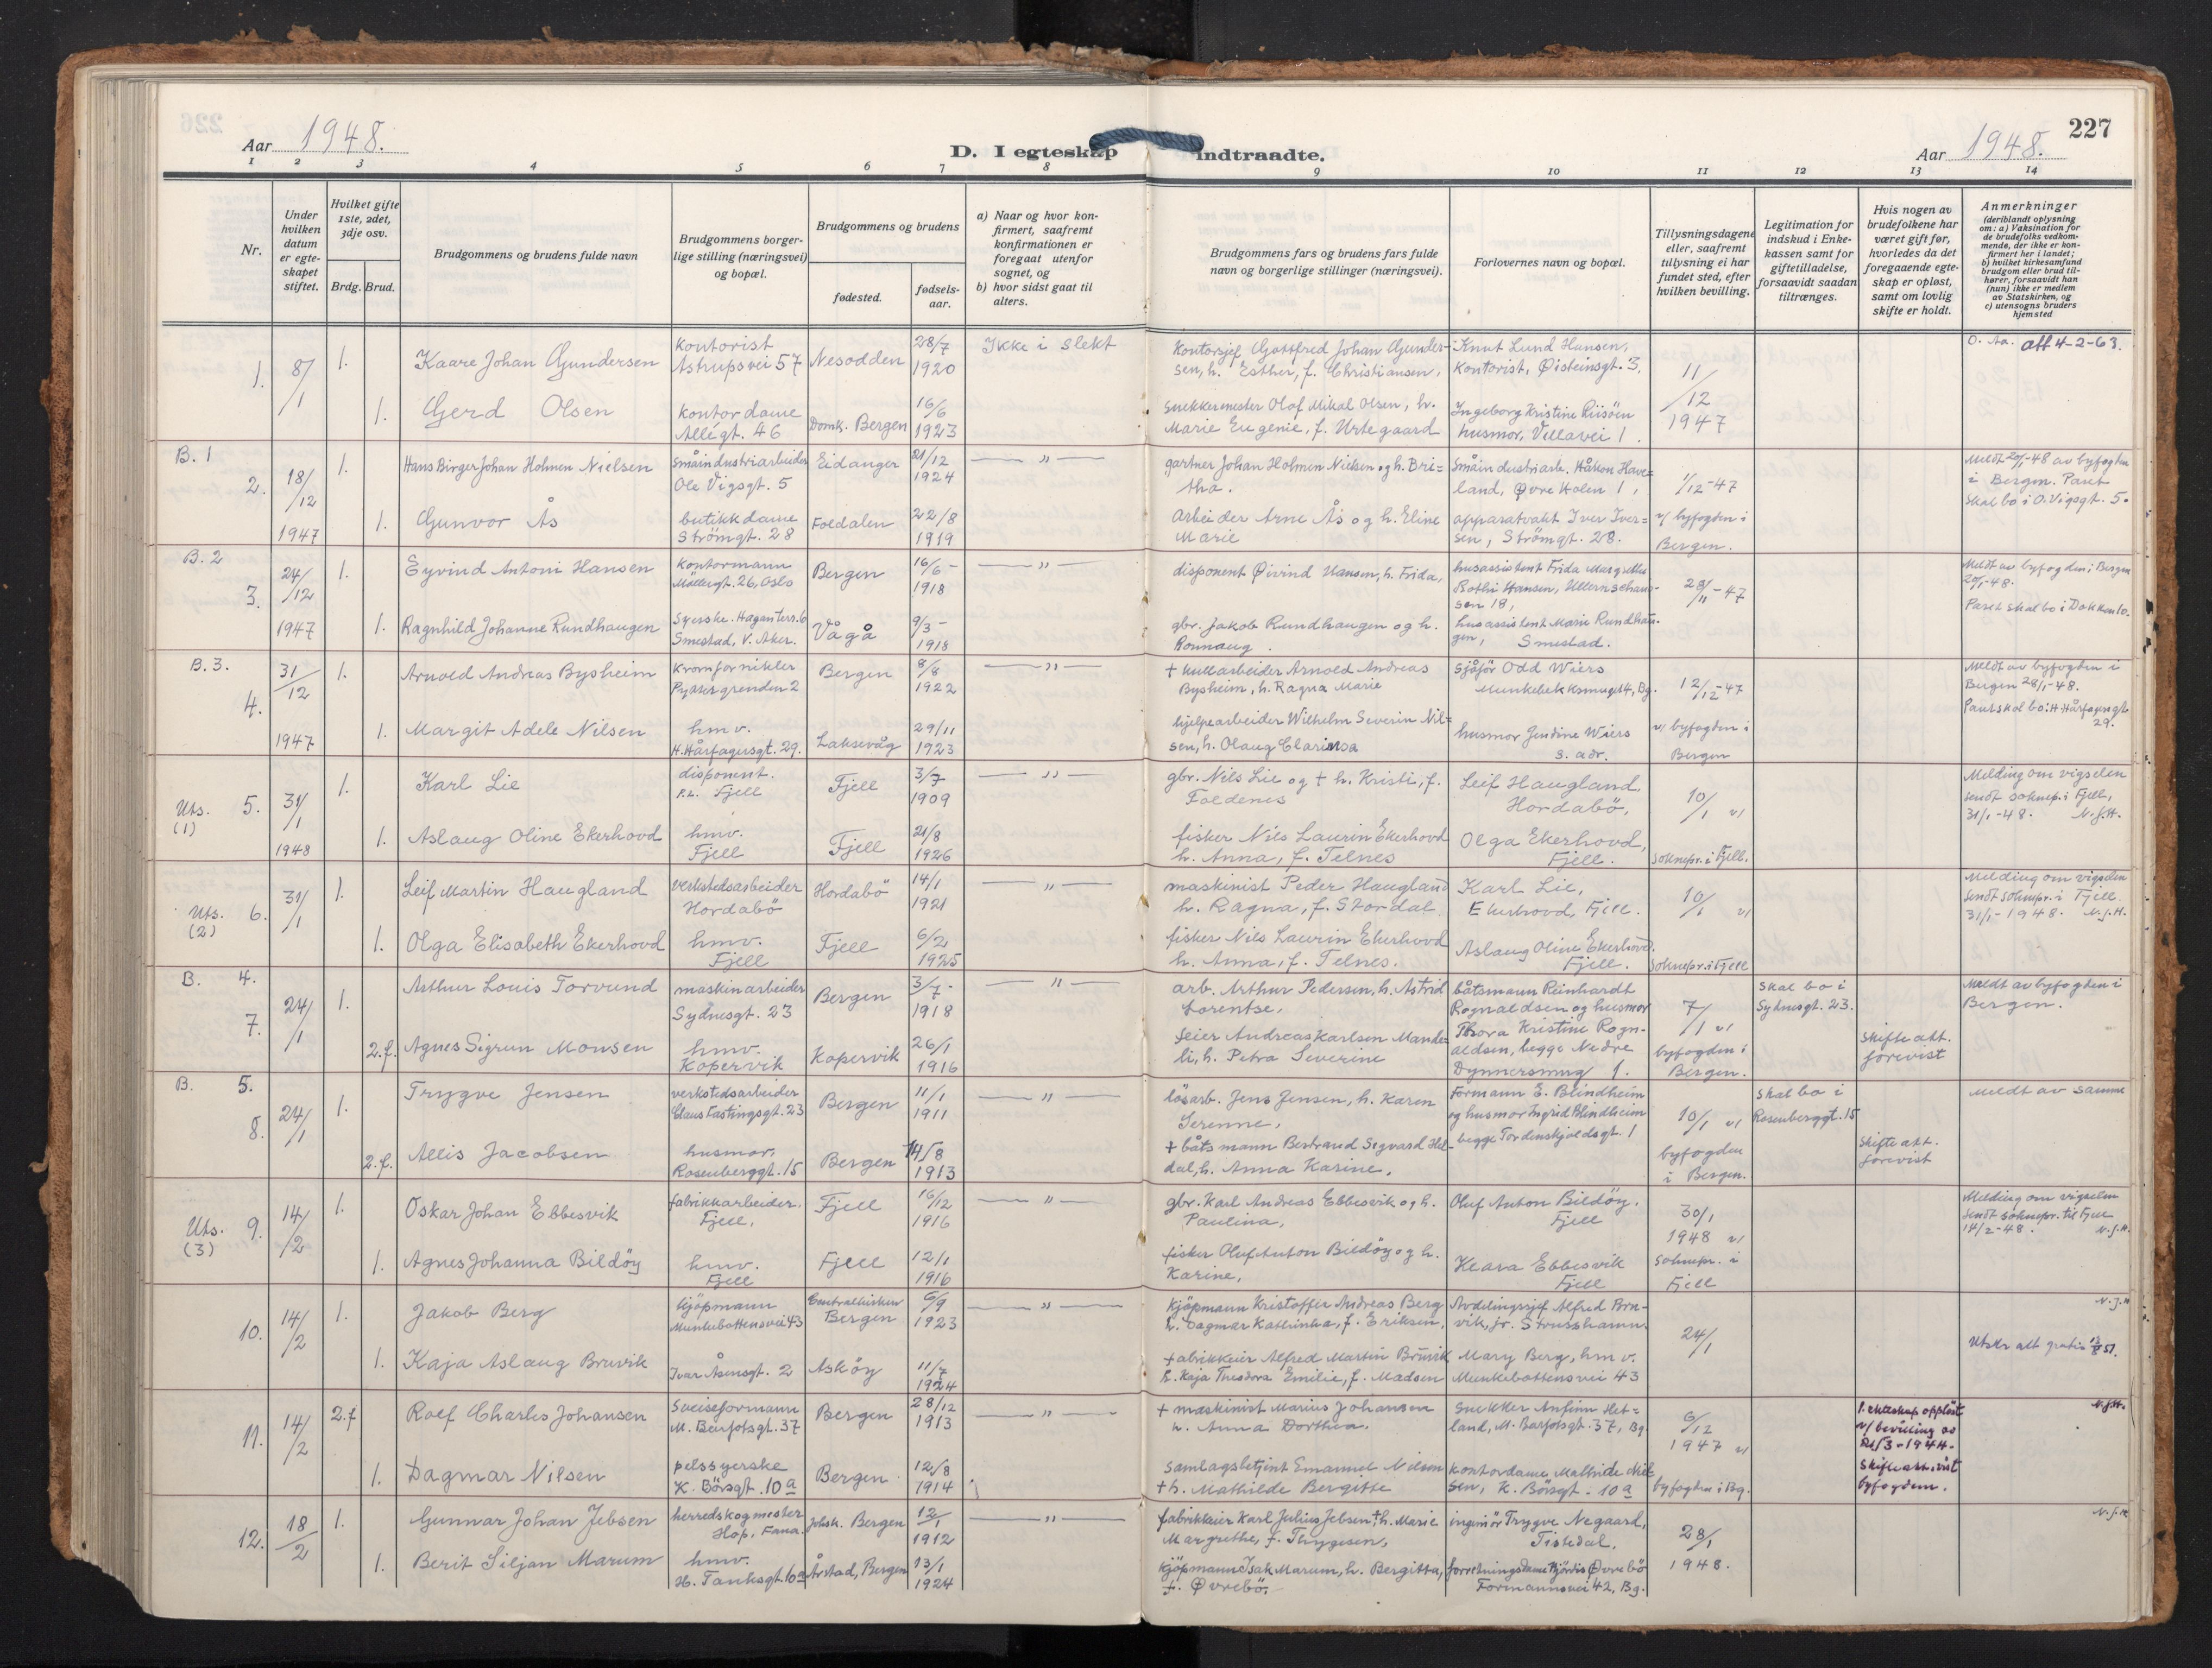 227
Aar 1948.
D. I egteskap indtraadte.
Aar 1948.
1 2 3 4 5 6 7 8 9 10 11 12 13 14
Nr.
Under hvilken datum er egteskapet stiftet.
Hvilket gifte 1ste, 2det, 3dje osv.
Brdg. Brud.
Brudgommens og brudens fulde navn
Brudgommens borgerlige stilling (næringsvei) og bopæl.
Brudgommens og brudens
fødested.
fødselsaar.
a) Naar og hvor konfirmert, saafremt konfirmationen er foregaat utenfor sognet, og
b) hvor sidst gaat til alters.
Brudgommens fars og brudens fars fulde navn og borgerlige stillinger (næringsvei).
Forlovernes navn og bopæl.
Tillysningsdagene eller, saafremt tillysning ei har fundet sted, efter hvilken bevilling.
Legitimation for indskud i Enkekassen samt for giftetilladelse, forsaavidt saadan tiltrænges.
Hvis nogen av brudefolkene har været gift før, hvorledes da det foregaaende egteskap er opløst, samt om lovlig skifte er holdt.
Anmerkninger
(deriblandt oplysning om: a) Vaksination for de brudefolks vedkommende, der ikke er konfirmert her i landet; b) hvilket kirkesamfund brudgom eller brud tilhører, forsaavidt han (hun) ikke er medlem av Statskirken, og c) utensogns bruders hjemsted
1. 8/1 1. Kaare Johan Gundersen kontorist Astrupsvei 57 Nesodden 28/7 1920 Ikke i slekt
Kontorsjef Gottfred Johan Gundersen, h. Esther, f. Christiansen, Knut Lund Hansen, kontorist, Øisteinsgt. 3, 11/12 1947 att 4-2-63.
1. Gerd Olsen kontordame Allégt. 46 Domk. Bergen 16/6 1923
Snekkermester Olaf Mikal Olsen, h. Marie Eugenie, f. Urtegaard Ingeborg Kristine Riisöen husmor, Villavei 1.
B. 1
2. 18/12 1947 1. Hans Birger Johan Holmen Nielsen Småindustriarbeider Ole Vigsgt. 5 Eidanger 21/12 1924 — " —
gartner Johan Holmen Nielsen og h. Britha. Småindustriarb. Håkon Haveland, Øvre Holen 1, 1/12-47 v/ byfogden i Bergen. Meldt 20/1-48 av byfogden i Bergen. Paret skal bo i O. Vigsgt. 5.
1. Gunvor Ås butikkdame Strömgt. 28 Foldalen 22/8 1919
Arbeider Arne Ås og h. Eline Marie apparatvakt Iver Iversen, Strömgt. 28.
B. 2
3. 24/12 1947 1. Eyvind Antoni Hansen Kontormann Möllergt. 26, Oslo Bergen 16/6- 1918 — " —
disponent Øivind Hansen, h. Frida, husassistent Frida Margrethe Bothi Hansen, Ullernschausen 18, 28/11-47 Meldt av byfogden i Bergen 20/1-48. Paret skal bo i Dokken 10.
1. Ragnhild Johanne Rundhaugen Syerske. Hagan terr. 6 Smestad, V. Aker. Vågå 9/3- 1918
gbr. Jakob Rundhaugen og h. Ronnaug. husassistent Marie Rundhaugen, Smestad.
B. 3.
4. 31/12 1947 1. Arnold Andreas Bysheim Kromfornikler Pyttergrenden 2 Bergen 8/8 1922 — " —
+ kullarbeider Arnold Andreas Bysheim, h. Ragna Marie Sjåför Odd Wiers Munkebekksmuget 4, Bg. 12/12-47 v/ byfogden i Bergen Meldt av byfogden i Bergen 28/1-48. Paret skal bo: H. Hårfagresgt. 29.
1. Margit Adele Nilsen hmv. H. Hårfagersgt. 29. Laksevåg 29/11 1923
hjelpearbeider Wilhelm Severin Nilsen, h. Olaug Clarissa husmor Jendine Wiers s. adr.
Uts. (1) 5. 31/1 1948 1. Karl Lie disponent. p.t. Fjell Fjell 3/7 1909 — " —
gbr. Nils Lie og + h. Kristi, f. Foldenes Leif Haugland, Hordabö, 10/1 v/ soknepr. i Fjell. Melding om vigselen sendt soknepr. i Fjell, 31/1-48. N.J.H.
1. Aslaug Oline Ekerhovd hmv. Fjell Fjell 21/8 1926
fisker Nils Laurin Ekerhovd h. Anna, f. Telnes Olga Ekerhovd, Fjell.
Uts. (2) 6. 31/1 1. Leif Martin Haugland verkstedsarbeider Hordabö Hordabö 14/1 1921 — " —
maskinist Peder Haugland h. Ragna, f. Stordal Karl Lie, Ekerhovd, Fjell. 10/1 v/ soknepr. i Fjell Melding om vigselen sendt soknepr. i Fjell. 31/1-1948. N.J.H.
1. Olga Elisabeth Ekerhovd hmv. Fjell Fjell 6/2 1925
fisker Nils Laurin Ekerhovd h. Anna, f. Telnes. Aslaug Oline Ekerhovd. Fjell.
B. 4.
7. 24/1 1. Arthur Louis Torvund maskinarbeider Sydnesgt. 23 Bergen 3/7- 1918 — " —
arb. Arthur Pedersen, h. Astrid Lorentse, båtsmann Reinhardt Rognaldsen og husmor Thora Kristine Rognaldsen, begge Nedre Dynnersmug 1. 7/1 v/ byfogden i Bergen. Skal bo i Sydnesgt. 23. Meldt av byfogden i Bergen.
2. f. Agnes Sigrun Monsen hmv. Kopervik Kopervik 26/1 1916
Feier Andreas Karlsen Mandeli, h. Petra Severine Skifteatt. forevist
B. 5.
8. 24/1 1. Trygve Jensen verkstedsarbeider Claus Fastingsgt. 23 Bergen 11/1 1911 — " —
lösarb. Jens Jensen, h. Karen Serenne, Formann E. Blindheim og husmor Ingrid Blindheim begge Tordenskjoldsgt. 1 10/1 v/ byfogden i Bergen. Skal bo i Rosenberggt. 15 Meldt av samme
2. f. Allis Jacobsen husmor, Rosenberggt. 15 Bergen 14/8 1913
+ båtsmann Bertrand Sigvard Heldal, h. Anna Karine. Skifteatt. forevist
Uts. (3) 9. 14/2 1. Oskar Johan Ebbesvik fabrikkarbeider. Fjell. Fjell 16/12 1916 — " —
gbr. Karl Andreas Ebbesvik og h. Paulina, Oluf Anton Bildöy. Fjell 30/1 1948 v/ soknepr. i Fjell Melding om vigselen sendt soknepr. til Fjell 14/2-48. N.J.H.
1. Agnes Johanna Bildöy hmv. Fjell Fjell 12/1 1916
fisker Oluf Anton Bildöy og h. Karine, Klara Ebbesvik Fjell
10. 14/2 1. Jakob Berg kjöpmann Munkebottensvei 43 Bergen 6/9 1923 — " —
Kjöpmann Kristoffer Andreas Berg h. Dagmar Kathinka, f. Eriksen, Avdelingssjef Alfred Bruvik, jr. Strusshamn. 24/1 N.J.H
1. Kaja Aslaug Bruvik Ivar Åsensgt. 2 Asköy 11/7 1924
fabrikkeier Alfred Martin Bruvik h. Kaja Theodora Emilie, f. Madsen Mary Berg, hmv. Munkebottensvei 43 Utskr. att gratis 13/8 51.
11. 14/2 2. f Rolf Charles Johansen Sveiseformann M. Barfotsgt. 37 Bergen 28/12 1913 — " —
+ maskinist Marius Johansen h. Anna Dorthea. Snekker Anfinn Hetland, M. Barfotsgt. 37, Bg 6/12 1947 v/ byfogden i Bg. 1. ekteskap opplöst v/ bevilling av 3-1944. Skifteatt. vist byfogden. N.J.H.
1. Dagmar Nilsen pelssyerske K. Börsgt. 10a Bergen 12/8 1914
Samlagsbetjent Emanuel Nilsen + h. Mathilde Bergitte kontordame Mathilde Nilsen, K. Börsgt. 10a
12. 18/2 1. Gunnar Johan Jebsen herredskogmester Hop, Fana. Johsk. Bergen 12/1 1912 — " —
fabrikkeier Karl Julius Jebsen + h. Marie Margrethe, f. Thygesen, ingeniör Trygve Negaard, Tistedal. 28/1 1948. N.J.H
1. Berit Siljan Marum hmv. H. Tanksgt. 10a Årstad, Bergen 13/1 1924
kjöpmann Isak Marum, h. Bergitta, f. Øvrebö. forretningsdame Hjördis Øvrebö Formannsvei 42, Bg.